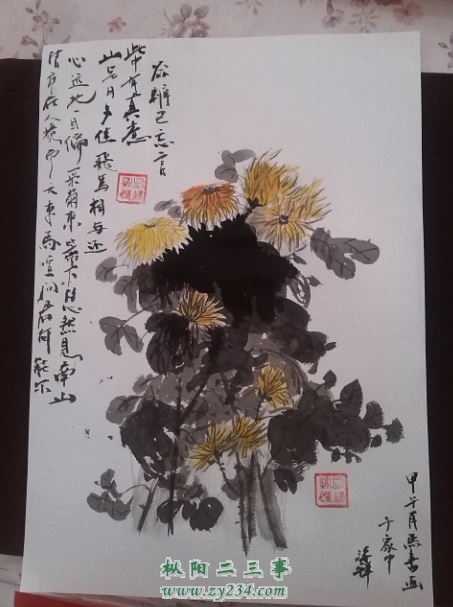 结庐在人境而无车马喧问君何能尔
心远地自偏采菊东篱下悠然见南山
山气日夕佳飞鸟相与还
此中有真意
欲辨已忘言
甲午
于家中
枞阳二三事
www.zy234.com